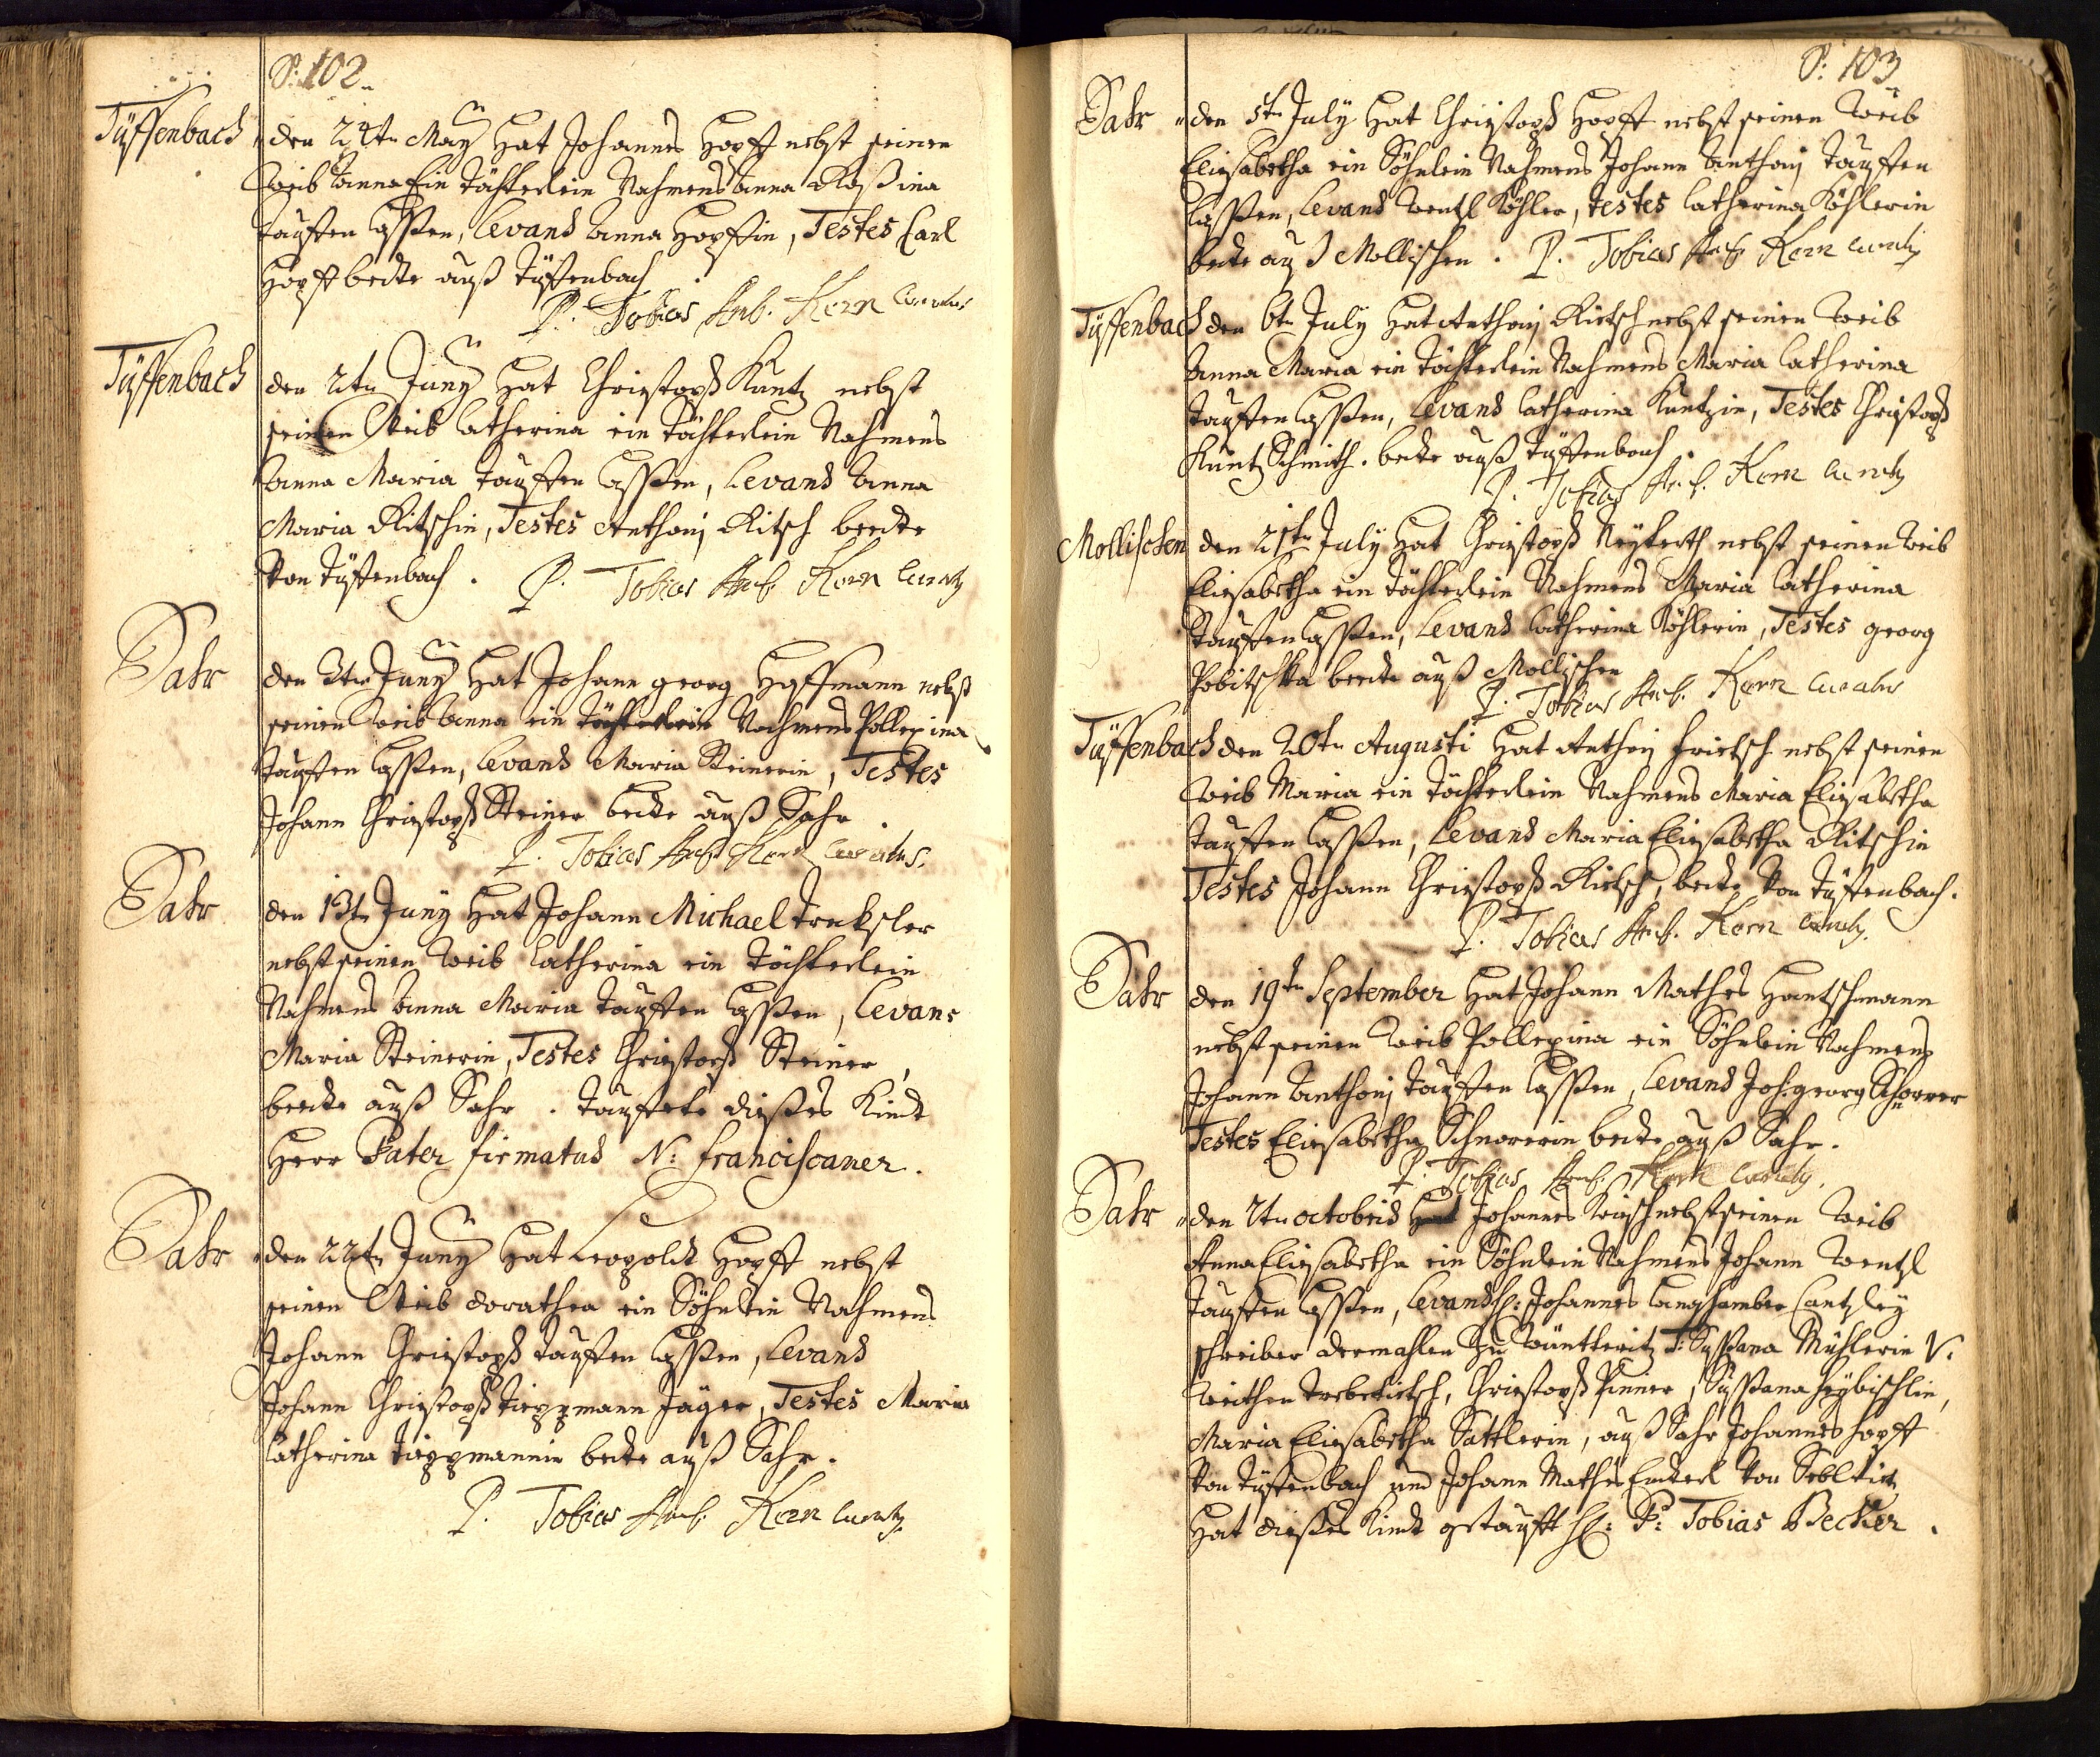 P: 102.
Tyffenbach
den 24tn May hat Johannes Hopff nebst seinen
Weib Anna Ein Töchterlein Nahmens Anna Rosina
tauffen lassen, Levans Anna Hopffin, Testes Carl
Hopff beede auß Tyffenbach
P. Tobias Amb. Kern Curatus
Tyffenbach
den 2tn Juny hat Christoph Kuntz nebst
seinen Weib Catherina ein Töchterlein Nahmens
Anna Maria tauffen lassen, Levans Anna
Maria Ritschin, Testes Anthonj Ritsch beede
Von Tyffenbach. P. Tobias Amb. Kern Curatus
Sahr
den 3tn Juny hat Johann georg Hoffmann nebst
seinen Weib Anna ein Töchterlein Nahmens Pollexina
tauffen lassen, Levans Maria Steinerin, Testes
Johann Christoph Steiner beede auß Sahr.
P. Tobias Amb. Kern Curatus.
Sahr
den 13tn Juny hat Johann Michael Treksler
nebst seinen Weib Catherina ein Töchterlein
Nahmens Anna Maria tauffen lassen, Levans
Maria Steinerin, Testes Christoph Steiner,
beede auß Sahr. tauffete dießes Kindt
Herr Pater firmatus N: franciscaner.
Sahr
den 22tn Juny hat Leopoldt Hopff nebst
seinen Weib dorathea ein Söhnlein Nahmens
Johann Christoph tauffen lassen, Levans
Johann Christoph Tieppmann Jäger, Testes Maria
Catherina Tieppmannin beede auß Sahr.
P. Tobias Amb. Kern Curatus.
P: 103
Sahr
den 5tn July hat Christoph Hopff nebst seinen Weib
Eliesabetha ein Söhnlein Nahmens Johann Anthonj tauffen
lassen, Levans Wentzl Köhler, testes Catherina Köhlerin
beede auß Mollischen. P. Tobias Amb. Kern Curatus
Tyffenbach
den 6tn July hat Anthonj Rietsch nebst seinen Weib
Anna Maria ein Töchterlein Nahmens Maria Catherina
tauffen lassen, Levans Catherina Kuntzin, Testes Christoph
Kuntz Schmith. beede auß Tyffenbach.
P. Tobias Amb. Kern Curatus
Mollischen
den 21tn July hat Christoph nebst seinen Weib
Eliesabetha ein Töchterlein Nahmens Maria Catherina
tauffen lassen, Levans Catherina Köhlerin, Testes georg
Pobitschka beede auß Mollischen
P. Tobias Amb. Kern Curatus
Tyffenbach
den 20tn Augusti hat Anthonj frietsch nebst seinen
Weib Maria ein Töchterlein Nahmens Maria Eliesabetha
tauffen lassen, Levans Maria Eliesabetha Ritschin
Testes Johann Christoph Rietsch, beede Von Tyffenbach.
P. Tobias Amb. Kern Curatus.
Sahr
den 19tn September hat Johann Mathes Hantschmann
nebst seinen Weib Pollexina ein Söhnlein Nahmens
Johann Anthonj tauffen lassen, Levans Joh: georg Schnorrer
Testes Eliesabetha Schnorerin beede auß Sahr.
P. Tobias Amb. Kern Curatus.
Sahr
den 2tn octobris hat Johannes Kirsch nebst seinen Weib
Anna Eliesabetha ein Söhnlein Nahmens Johann Wentzl
tauffen lassen, Levans H: Johannes Langhamber Cantzley
schreiber dermahlen zu T: Sussana Mühlerin V.
Christoph Sussana
Maria Eliesabetha Sattlerin, auß Sahr Johannes Hopff
Von Tyffenbach und Johann Mathes Von
hat dießes Kindt getaufft H: P: Tobias Becker.